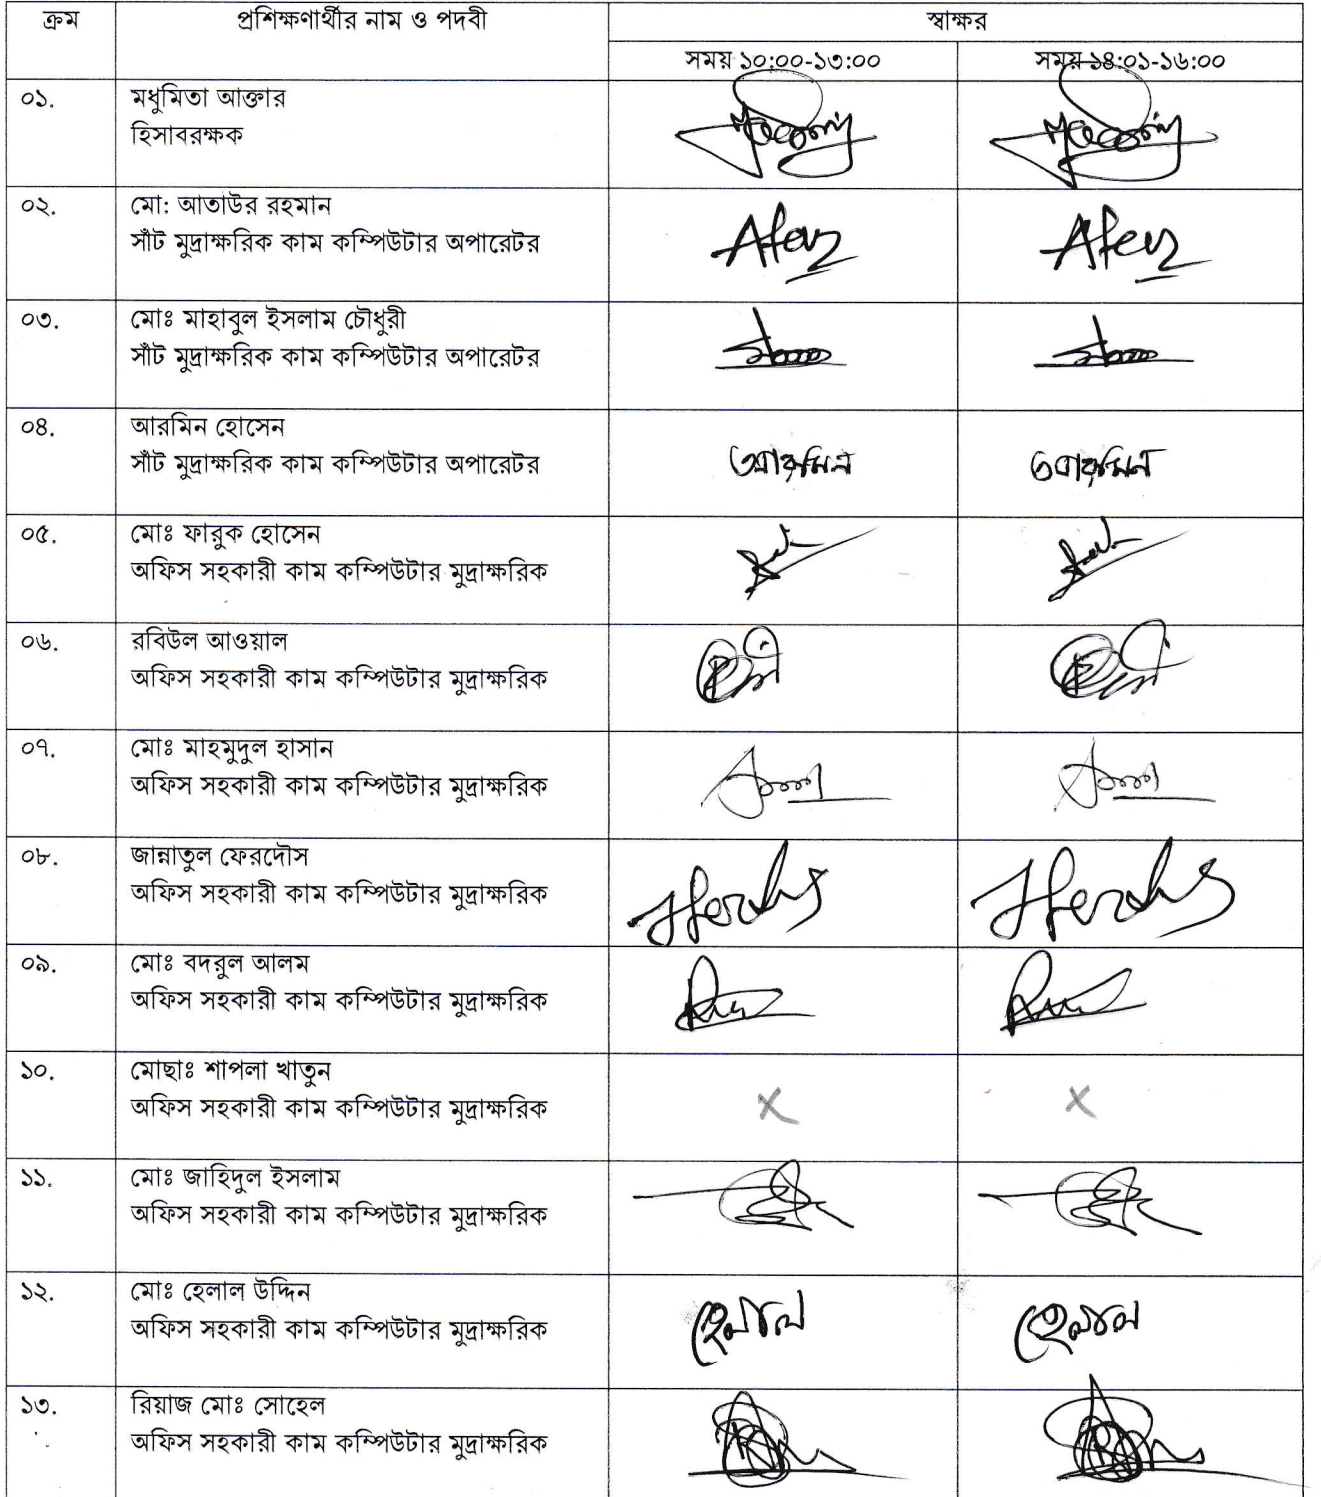 ক্রম প্রশিক্ষণার্থীর নাম ও পদবী স্বাক্ষর
সময় ১০:০০-১৩:০০ সময় ১৪:০১-১৬:০০
০১. মধুমিতা আক্তার
হিসাবরক্ষক
০২. মো: আতাউর রহমান
সাঁট মুদ্রাক্ষরিক কাম কম্পিউটার অপারেটর
০৩. মোঃ মাহাবুল ইসলাম চৌধুরী
সাঁট মুদ্রাক্ষরিক কাম কম্পিউটার অপারেটর
০৪. আরমিন হোসেন
সাঁট মুদ্রাক্ষরিক কাম কম্পিউটার অপারেটর আরমিন আরমিন
০৫. মোঃ ফারুক হোসেন
অফিস সহকারী কাম কম্পিউটার মুদ্রাক্ষরিক
০৬. রবিউল আওয়াল
অফিস সহকারী কাম কম্পিউটার মুদ্রাক্ষরিক
০৭. মোঃ মাহমুদুল হাসান
অফিস সহকারী কাম কম্পিউটার মুদ্রাক্ষরিক
০৮. জান্নাতুল ফেরদৌস
অফিস সহকারী কাম কম্পিউটার মুদ্রাক্ষরিক
০৯. মোঃ বদরুল আলম
অফিস সহকারী কাম কম্পিউটার মুদ্রাক্ষরিক
১০. মোছাঃ শাপলা খাতুন
অফিস সহকারী কাম কম্পিউটার মুদ্রাক্ষরিক X X
১১. মোঃ জাহিদুল ইসলাম
অফিস সহকারী কাম কম্পিউটার মুদ্রাক্ষরিক
১২. মোঃ হেলাল উদ্দিন
অফিস সহকারী কাম কম্পিউটার মুদ্রাক্ষরিক হেলাল হেলাল
১৩. রিয়াজ মোঃ সোহেল
অফিস সহকারী কাম কম্পিউটার মুদ্রাক্ষরিক